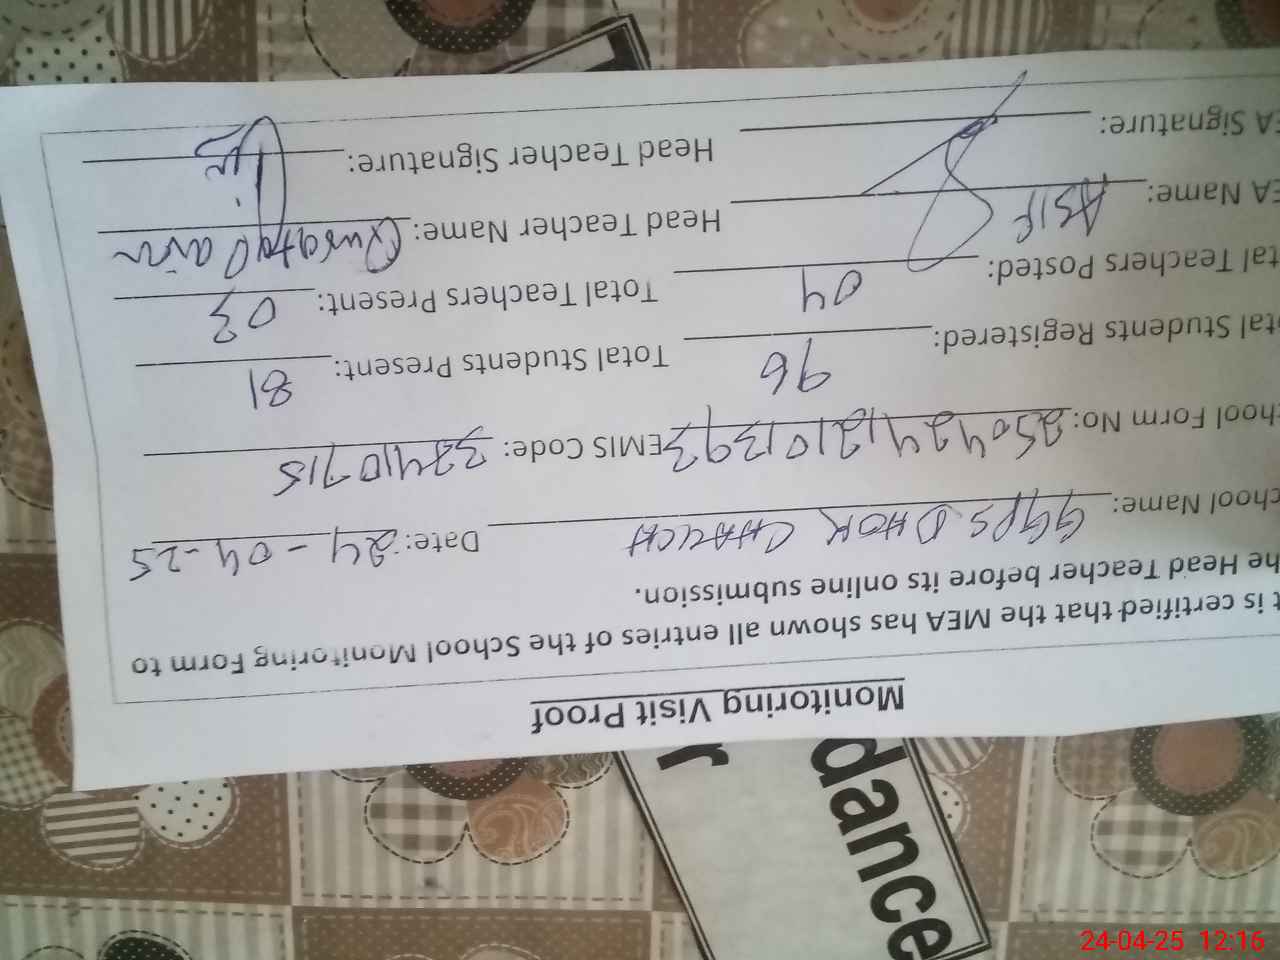 Monitoring Visit Proof
t is certified that the MEA has shown all entries of the School Monitoring Form to
he Head Teacher before its online submission.
chool Name: GGPS DHOK Date: 24-04-25
hool Form No: EMIS Code:
tal Students Registered: 96 Total Students Present: 81
tal Teachers Posted: 04 Total Teachers Present: 03
EA Name: ASIF Head Teacher Name: Qurat ul ain
EA Signature: Head Teacher Signature:
dance
r
24-04-25 12:16